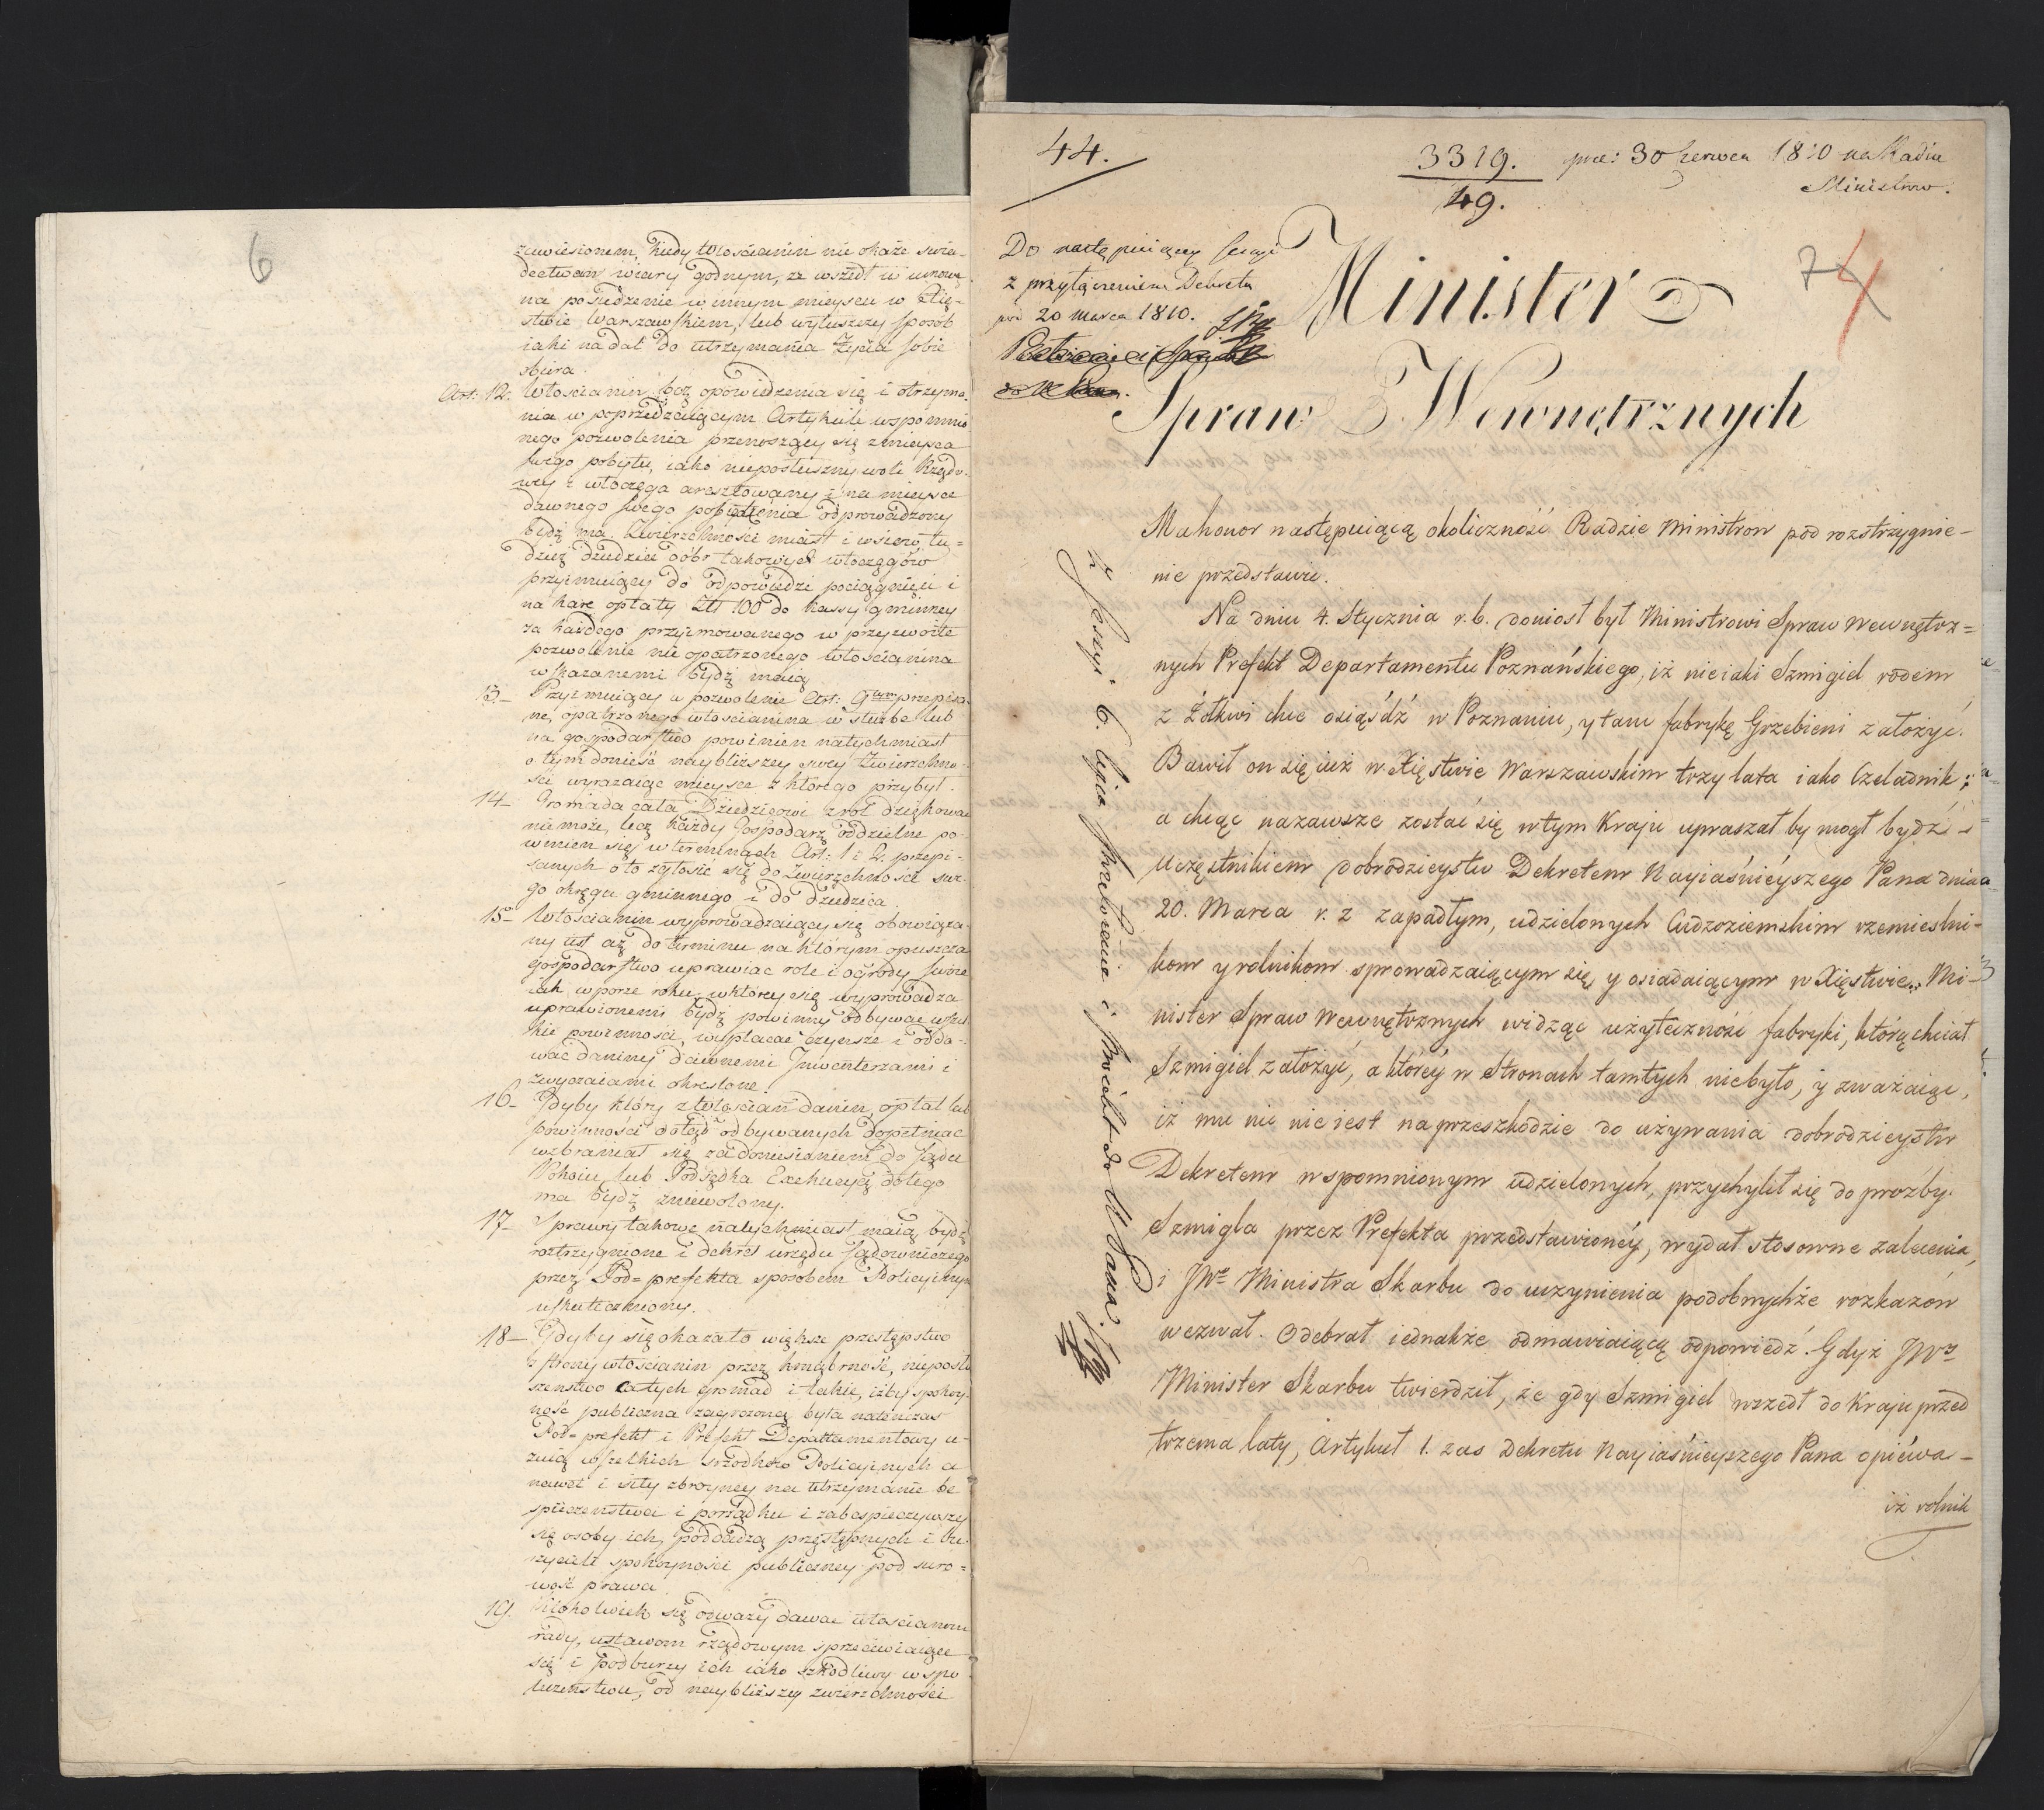 6
zawiesionem, kiedy Włościanin nie okaże świa-
dectwem wiary godnym, że wszedł w umowę
na posiedzenie w innym mieyscu w Xię-
stwie Warszawskiem, lub wyłuszczy sposób
iaki nadal do utrzymania życia sobie
obiera.
Art: 12. Włościanin bez opowiedzenia się i otrzyma-
nia w poprzedzaiącym Artykule wspomnio-
nego pozwolenia przenoszący się z mieysca
swego pobytu, iako nieposłuszny woli Rządo-
wey i włóczęga aresztowany i na mieysce
dawnego swego posiedzenia odprowadzony
bydź ma. Zwierzchności miast i wsiów, tu-
dzież dziedzice dóbr takowych włóczęgów
przyimuiący do odpowiedzi pociągnięci i
na karę opłaty Złł 100 do kassy gminney
za każdego przyimowanego w przyzwoite
pozwolenie nie opatrzonego włościanina
wskazanemi bydź maią
13- Przyimuiący w pozwolenie Art: 9tym przepisa-
ne, opatrzonego włościanina w służbę lub
na gospodarstwo powinien natychmiast
o tym donieść naybliższey swey Zwierzchno-
ści wyrażaiąc mieysce z którego przybył.
14- Gromada cała Dziedzicowi z ról dziękować
nie może, lecz każdy Gospodarz oddzielnie po-
winien się w terminach Art: 1 i 2. przepi-
sanych o to zgłosić się do Zwierzchności swe-
go okręgu gminnego i do dziedzica.
15- Włościanin wyprowadzaiący się obowiąza-
ny iest aż do terminu na którym opuszcza
gospodarstwo uprawiać role i ogrody swoie
iak w porze roku, w którey się wyprowadza
uprawionemi bydź powinny odbywać wszel-
kie powinności, wypłacać czynsze i odda-
wać daniny dawnemi Inwentarzami i
zwyczaiami określone.
16- Gdyby który z Włościan danin, opłat lub
powinności dotąd odbywanych dopełniać
wzbraniał się za doniesieniem do Sądu
Pokoiu lub Podsędka Exekucyą do tego
ma bydź zniewolony.
17- Sprawy takowe natychmiast maią bydź
roztrzygnione i dekret urzędu sądowniczego
przez Pod=prefekta sposobem Policyinym
uskuteczniony.
18- Gdyby się okazało większe przestępstwo
z strony włościanin przez krnąbrność, nieposłu-
szeństwo całych gromad i takie, iżby spokoy-
ność publiczna zagrożoną była natenczas
Pod=prefekt i Prefekt Departamentowy u-
żyią wszelkich srzodków Policyinych a
nawet i siły zbroyney na utrzymanie be-
spieczeństwa i porządku i zabespieczywszy
się osoby ich, poddadzą przestępnych i bu-
rzycieli spokoyności publiczney pod suro=
wość prawa
19. Ktokolwiek się odważy dawać włościanom
rady, ustawom rządowym sprzeciwiaiące
się i podburzy ich iako szkodliwy w spo-
łeczeństwie, od naybliższey zwierzchności
44.
3319.
49.
prez: 30 Czerwca 1810 na Radzie
Ministrów.
74
Do następuiącey sessyi
z przyłączeniem Dekretu
pod 20 Marca 1810.
Minister
Spraw Wewnętrznych
Z sessyi 6. Lipca
Ma honor następuiącą okoliczność Radzie Ministrów pod rozstrzygnie-
nie przedstawić.
Na dniu 4. Stycznia r. b. doniosł był Ministrowi Spraw Wewnętrz=
nych Prefekt Departamentu Poznańskiego, iż nieiaki Szmigiel rodem
z Żółkwi chce osiąśdź w Poznaniu, y tam fabrykę Grzebieni założyć.
Bawił on się iuż w Xięstwie Warszawskim trzy lata iako Czeladnik;
a chcąc nazawsze zostać się w tym Kraju upraszał by mogł bydź
uczęstnikiem dobrodzieystw Dekretem Nayiaśnieyszego Pana dnia
20. Marca r. z zapadłym, udzielonych Cudzoziemskim rzemieslni-
kom y rolnikom sprowadzaiącym się y osiadaiącym w Xięstwie. Mi-
nister Spraw Wewnętrznych widząc użyteczność fabryki, którą chciał
Szmigiel założyć, a którey w stronach tamtych niebyło, y zważaiąc,
iż mu nic nie iest na przeszkodzie do używania dobrodzieystw
Dekretem wspomnionym udzielonych, przychylił się do prozby
Szmigla przez Prefekta przedstawioney, wydał stosowne zalecenia,
i JWo Ministra Skarbu do uczynienia podobnychże rozkazów
wezwał. Odebrał iednakże odmawiaiącą odpowiedź. Gdyż JWy
Minister Skarbu twierdził, że gdy Szmigiel wszedł do Kraju przed
trzema laty, Artykuł 1. zas Dekretu Nayiaśnieyszego Pana opiéwa-
iż rolnik